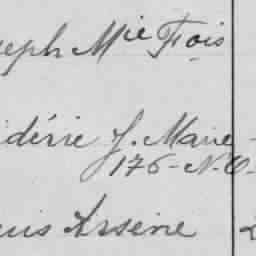 seph Mie Fois
idérie J. Marie -
176 - N. O -
uis Arsène